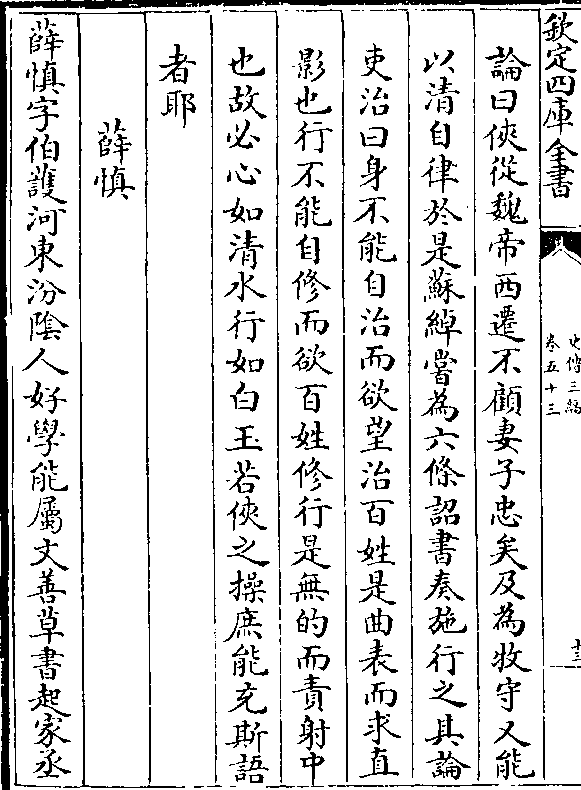 欽定四庫全書
史傳三編
卷五十三
十三
論曰俠從魏帝西遷不顧妻子忠矣及為牧守又能
以清自律於是蘇綽嘗為六條詔書奏施行之其論
吏治曰身不能自治而欲望治百姓是曲表而求直
影也行不能自修而欲百姓修行是無的而責射中
也故必心如清水行如白玉若俠之操庶能充斯語
者耶
薛慎
薛慎字伯護河東汾陰人好學能屬文善草書起家丞